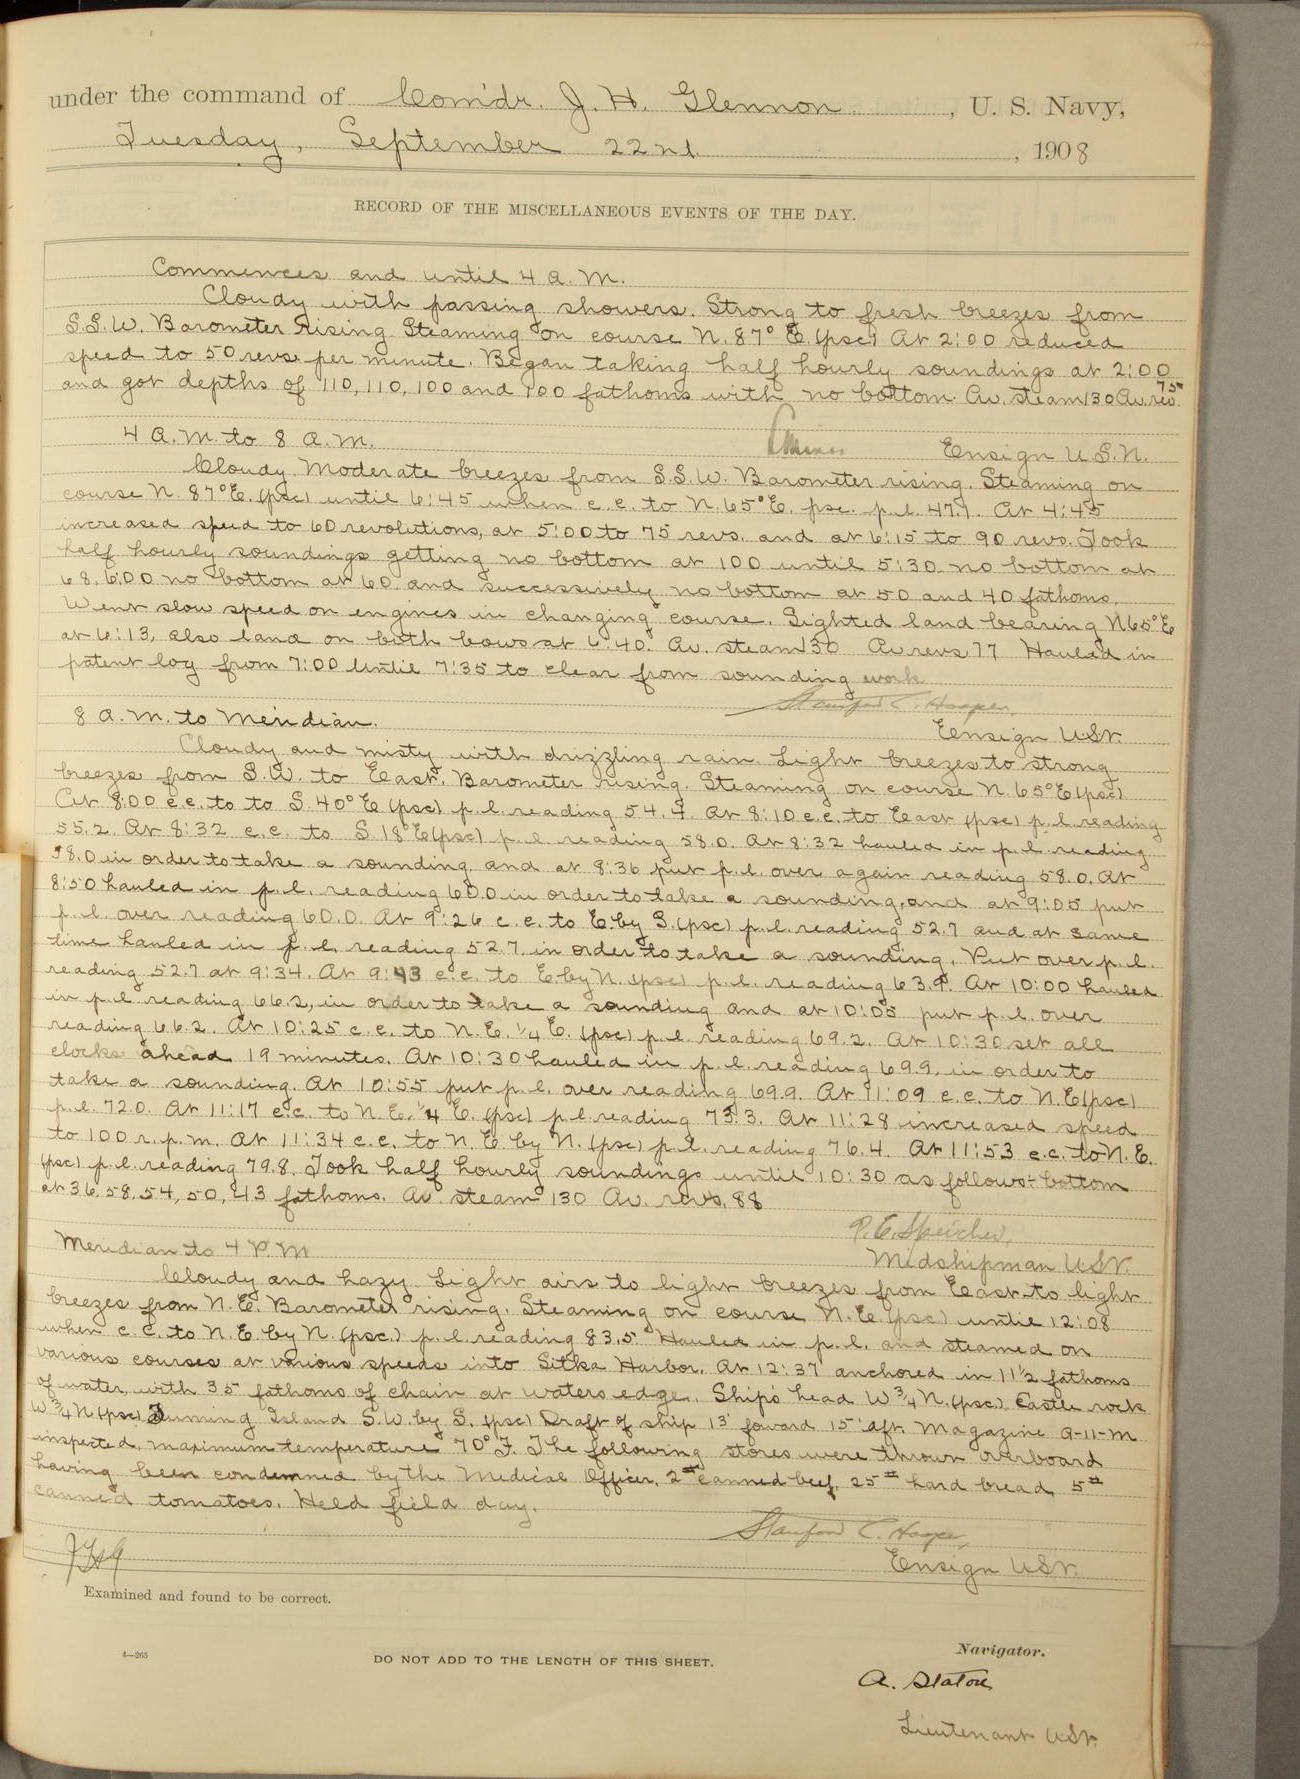 under the command of Com'dr. J. H. Glennon, U. S. Navy,
Tuesday, September 22nd, 1908
RECORD OF THE MISCELLANEOUS EVENTS OF THE DAY.
Commences and until 4 A.M.
Cloudy with passing showers. Strong to fresh breezes from
S.S.W. Barometer rising. Steaming on course N. 87° E. (psc) At 2:00 reduced
speed to 50 revs. per minute. Began taking half hourly soundings at 2:00
and got depths of 110, 110, 100 and 100 fathoms with no bottom. Av. steam 130 Av. rev. 75
Ensign U.S.N.
4 A.M. to 8 A.M.
Cloudy. Moderate breezes from S.S.W. Barometer rising. Steaming on
course N. 87° E. (psc) until 6:45 when c.c. to N. 65° E. psc. p.l. 47.7. At 4:45
increased speed to 60 revolutions, at 5:00 to 75 revs. and at 6:15 to 90 revs. Took
half hourly soundings getting no bottom at 100 until 5:30 no bottom at
68, 6:00 no bottom at 60, and successively no bottom at 50 and 40 fathoms.
Went slow speed on engines in changing course. Sighted land bearing N 65° E
at 6:13, also land on both bows at 6:40. Av. steam 130 Av revs 77 Hauled in
patent log from 7:00 until 7:35 to clear from sounding work.
Stanford C. Hooper,
Ensign U.S.N.
8 A.M. to Meridian.
Cloudy and misty with drizzling rain. Light breezes to strong
breezes from S.W. to East. Barometer rising. Steaming on course N. 65° E (psc)
At 8:00 c.c. to to S. 40° E (psc) p.l. reading 54.4. At 8:10 c.c. to East (psc) p.l. reading
55.2. At 8:32 c.c. to S. 18° E (psc) p.l. reading 58.0. At 8:32 hauled in p.l. reading
58.0 in order to take a sounding, and at 8:36 put p.l. over again reading 58.0. At
8:50 hauled in p.l. reading 60.0 in order to take a sounding, and at 9:05 put
p.l. over reading 60.0. At 9:26 c.c. to E. by S. (psc) p.l. reading 52.7 and at same
time hauled in p.l. reading 52.7. in order to take a sounding. Put over p.l.
reading 52.7 at 9:34. At 9:43 c.c. to E by N. (psc) p.l. reading 63.9. At 10:00 hauled
in p.l. reading 66.2, in order to take a sounding and at 10:05 put p.l. over
reading 66.2. At 10:25 c.c. to N.E. 1/4 E. (psc) p.l. reading 69.2. At 10:30 set all
clocks ahead 19 minutes. At 10:30 hauled in p.l. reading 69.9, in order to
take a sounding. At 10:55 put p.l. over reading 69.9. At 11:09 c.c. to N.E (psc)
p.l. 72.0. At 11:17 c.c. to N.E. 1/4 E. (psc) p.l. reading 73.3. At 11:28 increased speed
to 100 r.p.m. At 11:34 c.c. to N.E by N. (psc) p.l. reading 76.4. At 11:53 c.c. to N.E.
(psc) p.l. reading 79.8. Took half hourly soundings until 10:30 as follows- bottom
at 36, 58, 54, 50, 43 fathoms. Av. steam 130 Av. revs. 88
P.E. Speicher,
Midshipman U.S.N.
Meridian to 4 P.M
Cloudy and hazy. Light airs to light breezes from East to light
breezes from N.E. Barometer rising. Steaming on course N.E. (psc) until 12:08
when c.c. to N.E. by N. (psc.) p.l. reading 83.5 Hauled in p.l. and steamed on
various courses at various speeds into Sitka Harbor. At 12:37 anchored in 11 1/2 fathoms
of water, with 35 fathoms of chain at waters edge. Ship's head W 3/4 N. (psc). Castle rock
W 3/4 N (psc) Island S.W. by S. (psc) Draft of ship 13' foward 15' aft. Magazine G-11-M
inspected, maximum temperature 70° F. The following stores were thrown overboard
having been condemned by the Medical Officer. 2# canned beef, 25# hard bread, 5#
canned tomatoes. Held field day.
Stanford C. Hooper,
Ensign U.S.N.
Examined and found to be correct.
4—265
DO NOT ADD TO THE LENGTH OF THIS SHEET.
Navigator.
A. Staton
Lieutenant U.S.N.